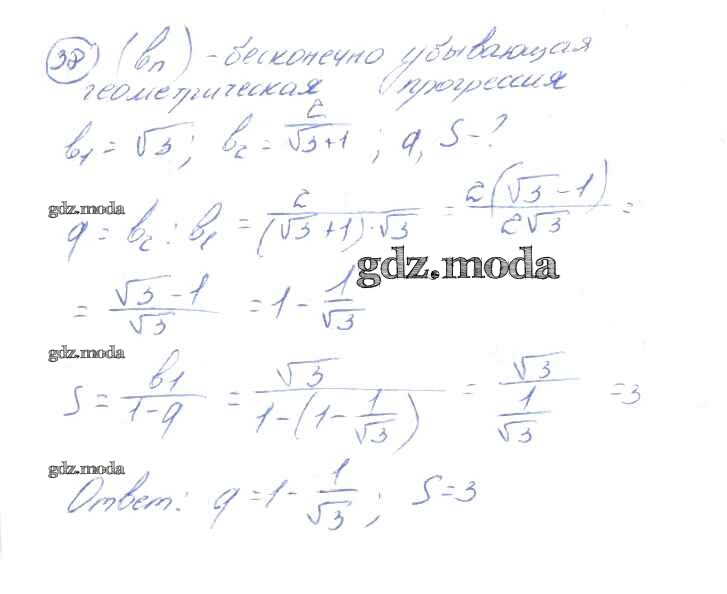 38) (bn) - бесконечно убывающая
геометрическая прогрессия
b1 = √3; b2 = 2/(√3+1); q, S-?
gdz.moda
q = b2 : b1 = 2/((√3+1)·√3) = 2(√3-1)/(2√3) =
gdz.moda
= (√3-1)/√3 = 1 - 1/√3
gdz.moda
S = b1/(1-q) = √3/(1-(1-1/√3)) = √3/(1/√3) = 3
gdz.moda
Ответ: q = 1 - 1/√3; S = 3